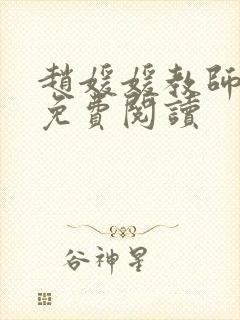 趙媛媛教師
免費閱讀
谷神星